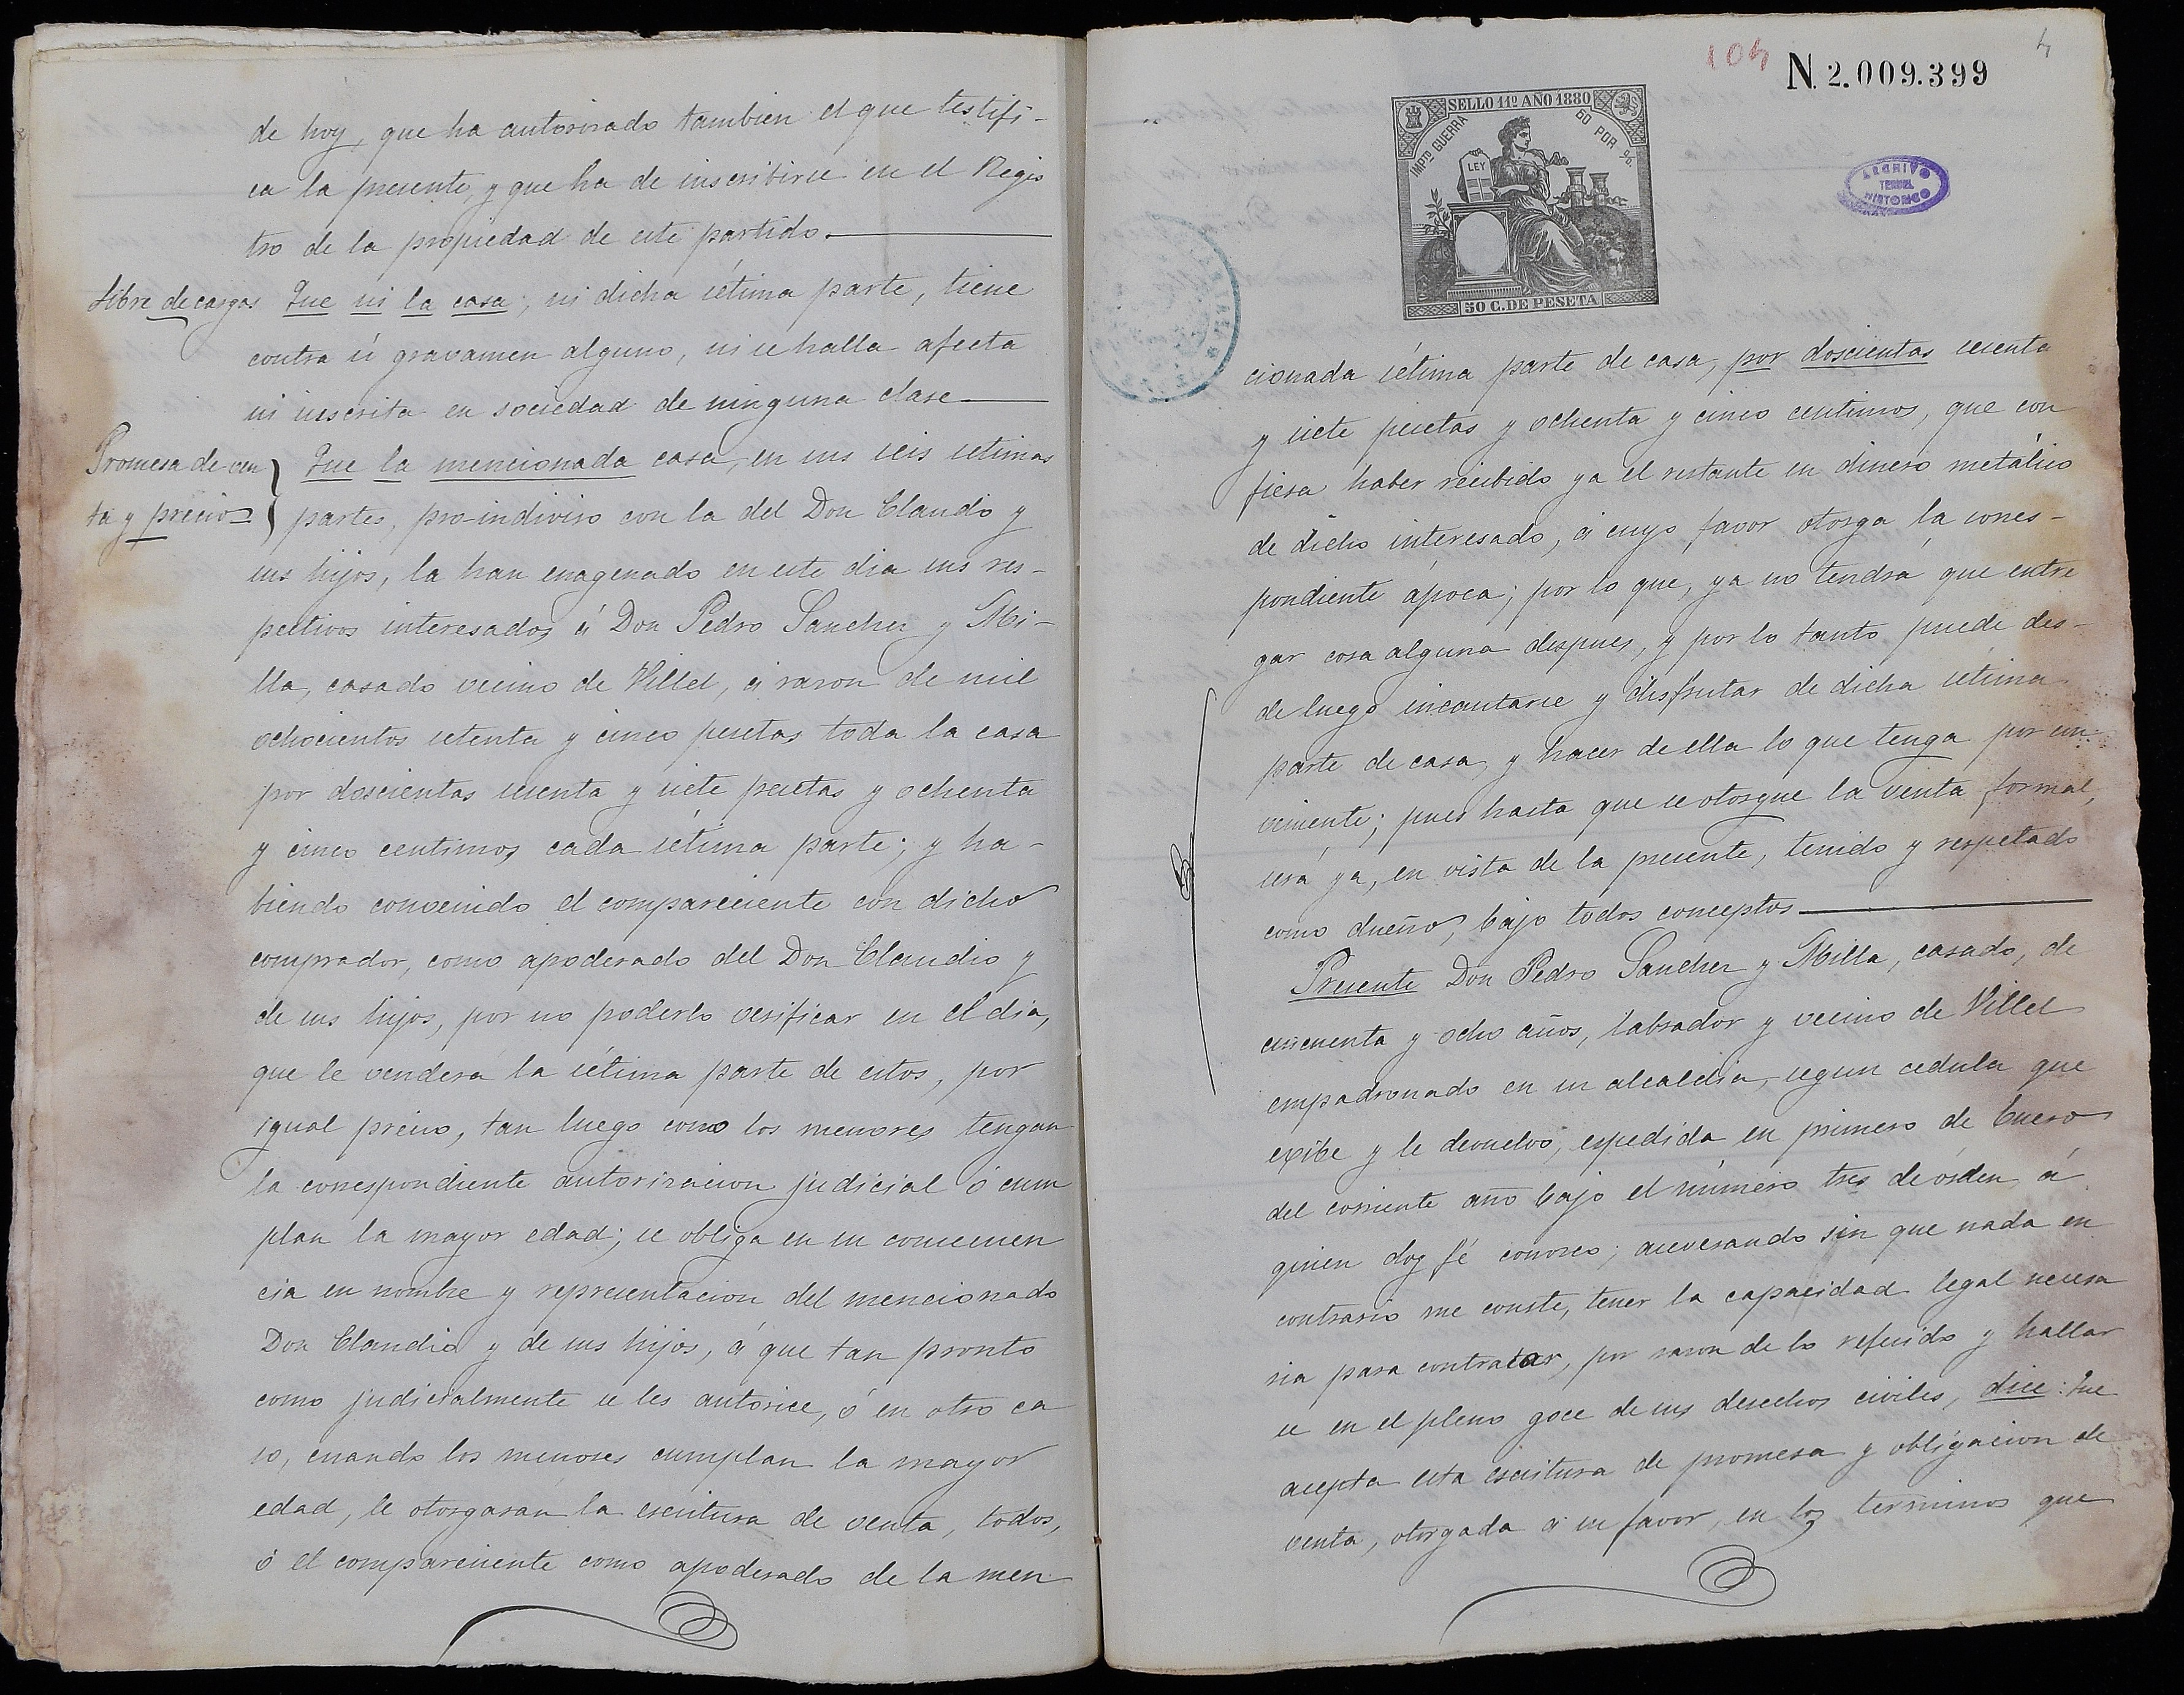 de hoy, que ha autorizado tambien el que testifi-
ca la presente, y que ha de inscribirse en el Regis
tro de la propiedad de este partido.
Libre de cargas
Que ni la casa, ni dicha sétima parte, tiene
contra sí gravamen alguno, ni se halla afecta
ni inscrita en sociedad de ninguna clase
Promesa de ven
ta y precio
Que la mencionada casa, en sus seis setimas
partes, pro-indiviso con la del Don Claudio y
sus hijos, la han enagenado en este dia sus res-
pectivos interesados á Don Pedro Sanchez y Mi-
lla, casado vecino de Villel, á razon de mil
ochocientos setenta y cinco pesetas toda la casa
por doscientas sesenta y siete pesetas y ochenta
y cinco centimos cada sétima parte; y ha-
biendo convenido el compareciente con dicho
comprador, como apoderado del Don Claudio y
de sus hijos, por no poderlo verificar en el dia,
que le venderá la sétima parte de estos, por
igual precio, tan luego como los menores tengan
la correspondiente autorizacion judicial ó cum
plan la mayor edad; se obliga en su consecuen
cia en nombre y representacion del mencionado
Don Claudio y de sus hijos, á que tan pronto
como judicialmente se les autorice, ó en otro ca
so, cuando los menores cumplan la mayor
edad, le otorgaran la escritura de venta, todos,
ó el compareciente como apoderado de la men
104
4
N.2.009.399
SELLO 11º AÑO 1880
IMPTO GUERRA
60 POR %
LEY
50 C. DE PESETA
ARCHIVO
TERUEL
HISTORICO
cionada sétima parte de casa, por doscientas sesenta
y siete pesetas y ochenta y cinco centimos, que con
fiesa haber recibido ya el restante en dinero metálico
de dicho interesado, á cuyo favor otorga la corres-
pondiente ápoca; por lo que, ya no tendrá que entre
gar cosa alguna despues, y por lo tanto puede des-
de luego incautarse y disfrutar de dicha sétima
parte de casa, y hacer de ella lo que tenga por con
veniente; pues hasta que se otorgue la venta formal,
será ya, en vista de la presente, tenido y respetado
como dueño, bajo todos conceptos
Presente Don Pedro Sanchez y Milla, casado, de
cincuenta y ocho años, labrador y vecino de Villel
empadronado en su alcaldia, segun cedula que
exibe y le devuelvo, espedida en primero de Enero
del corriente año bajo el número tres de órden, á
quien doy fé conozco; aseverando sin que nada en
contrario me conste, tener la capacidad legal necesa
ria para contratar, por razon de lo referido y hallar
se en el pleno goce de sus derechos civiles, dice: Que
acepta esta escritura de promesa y obligacion de
venta, otorgada á su favor, en los terminos que